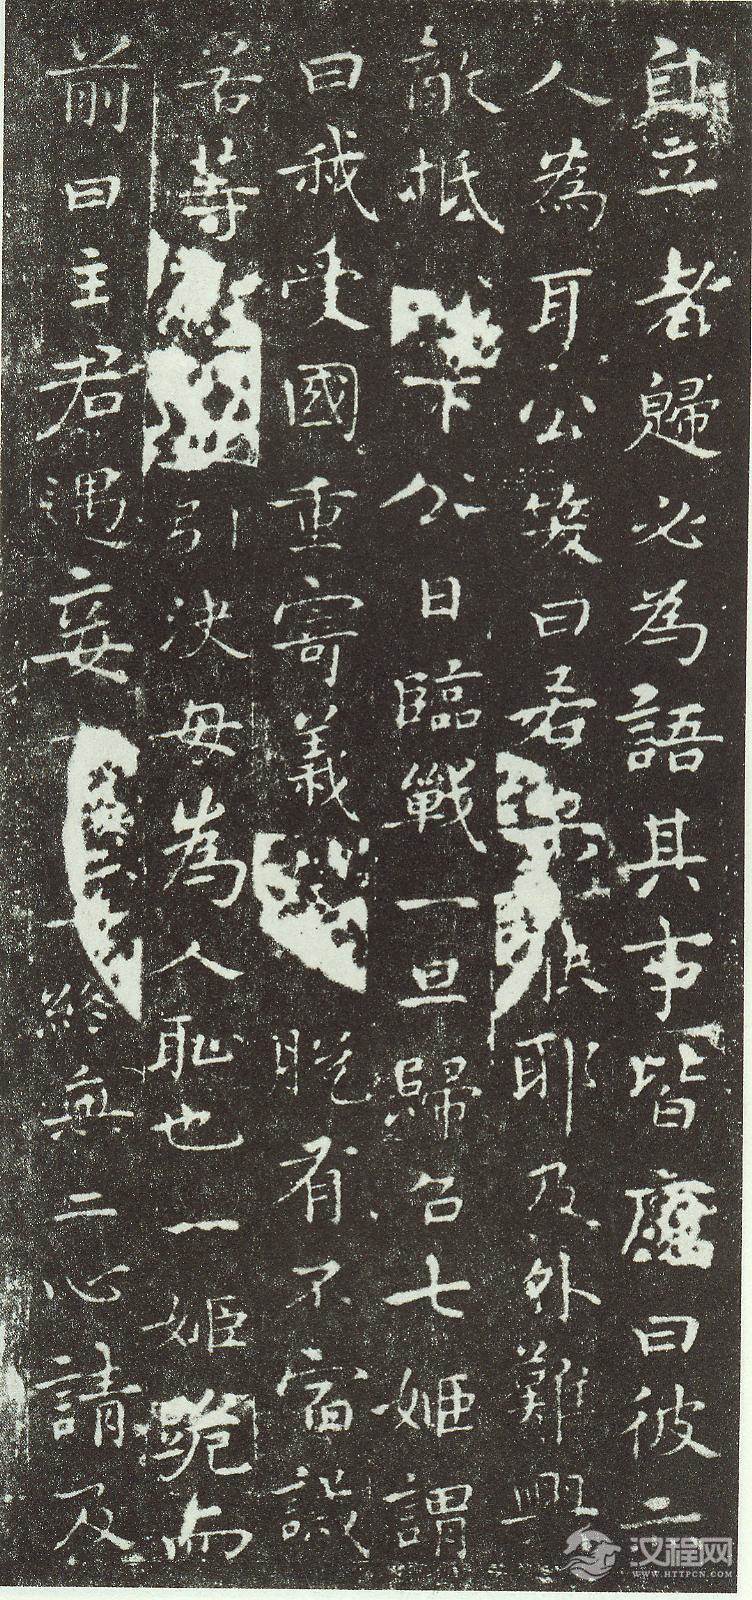 自立者歸必為語其事皆應曰彼
人為耳公笑曰若果耶及外難興
敵抵下公日臨戰一旦歸召七姬謂
曰我受國重寄義脫有不宿誡
若等引決毋為人恥也一姬跪而
前曰主君遇妾終無二心請及
汉程网
WWW.HTTPCN.COM